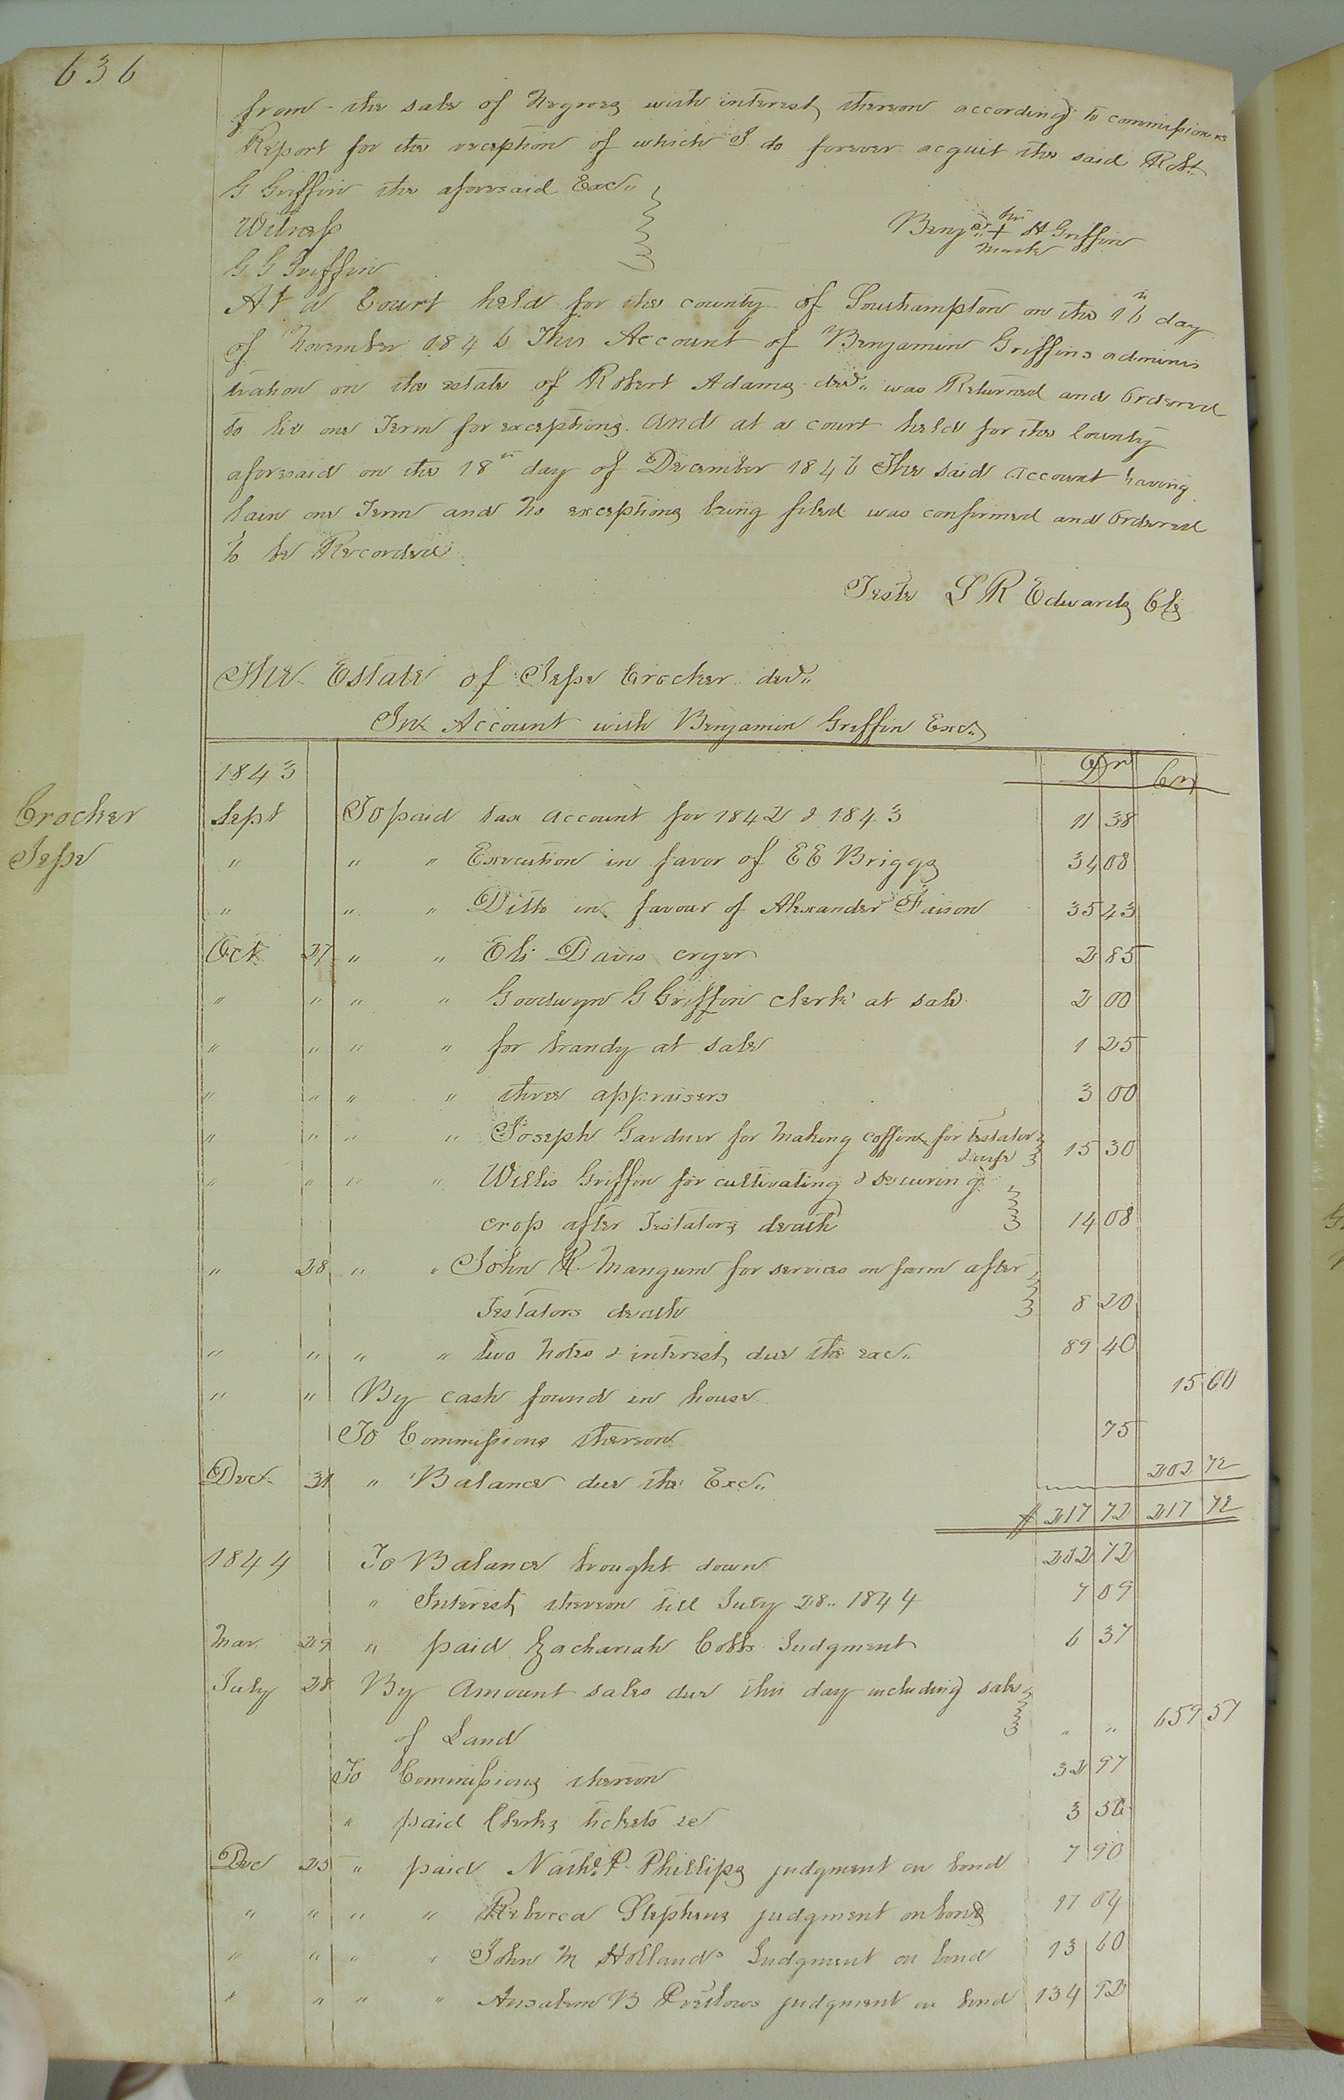 636
from the sale of Negroes with interest thereon according to commissioners
Report for the reception of which I do forever acquit the said Robt
G Griffin the aforesaid Exc"
Witness
Benja" his + H Griffin
mark
G G Griffin
At a Court held for the county of Southampton on the 16th day
of November 1846 This Account of Benjamin Griffins adminis
tration on the estate of Robert Adams decd" was Returned and Ordered
to lie one Term for exceptions. And at a court held for the County
aforesaid on the 18th day of December 1846 The said account having
lain one Term and No exceptions being filed was confirmed and Ordered
to be Recorded
Teste L R Edwards Clk
The Estate of Jesse Crocker decd"
In Account with Benjamin Griffin Exc"
1843 Dr Cr
Crocker
Jesse
Sept To paid tax account for 1842 & 1843 11 38
" " " Execution in favor of E E Briggs 34 08
" " " Ditto in favour of Alexander Faison 35 43
Oct 27 " " Eli Davis cryer 2 85
" " " " Goodwyn G Griffin clerk at sale 2 00
" " " " for brandy at sale 1 25
" " " " three appraisers 3 00
" " " " Joseph Gardner for Making coffins for testator & wife 15 30
" " " " Willis Griffin for cultivating & securing
crop after Testators death 14 08
" 28 " " John R Mangum for services on farm after
Testators death 8 20
" " " " two Notes & interest due the exc" 89 40
" " By cash found in house 15 00
To Commissions thereon 75
Dec 31 " Balance due the Exc" 202 72
$ 217 72 217 72
1844 To Balance brought down 202 72
" Interest thereon till July 28" 1844 7 09
Mar 29 " paid Zachariah Cobbs Judgment 6 37
July 28 By Amount sales due this day including sale
of Land " " 659 57
To Commissions thereon 32 97
" paid Clerks tickets &c 3 56
Dec 25 " paid Nathl P Phillips judgment on bond 7 90
" " " " Rebecca Stephens judgment on bond 11 04
" " " " John M Hollands Judgment on bond 13 60
" " " " B judgment on bond 134 92